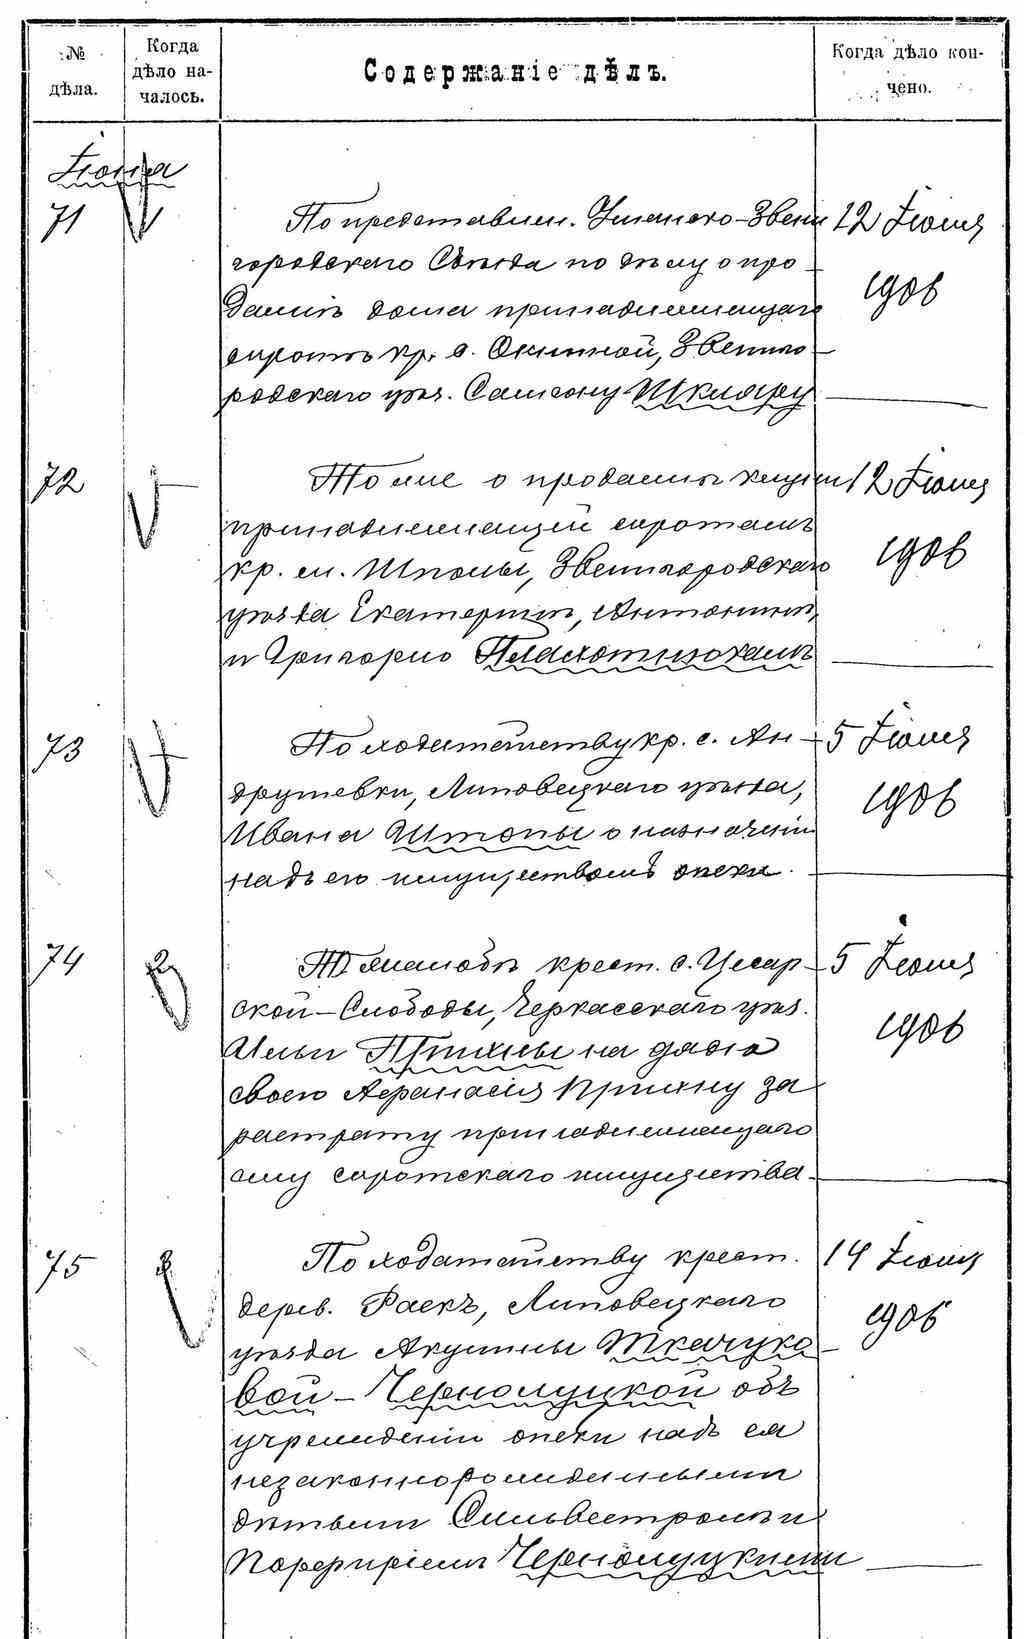 № дѣла.
Когда дѣло началось.
Содержаніе дѣлъ.
Когда дѣло кончено.
Іюня
71
По представлен. Уманско-Звени
городскаго Съѣзда по дѣлу о про-
дажѣ дома принадлежащаго
сиротѣ кр. с. Окниной, Звениго-
родскаго уѣз. Самсону Шкляру
12 Іюня
1906
72
То же о продажѣ хижи
принадлежащей сиротамъ
кр. м. Шполы, Звенигородскаго
уѣзда Екатеринѣ, Антонинѣ,
и Григорію Плахотнюкамъ
12 Іюня
1906
73
По ходатайству кр. с. Ан-
друшевки, Липовецкаго уѣзда,
Ивана Штопы о назначеніи
надъ его имуществомъ опеки.
5 Іюня
1906
74
По жалобѣ крест. с. Цесар-
ской-Слободы, Черкасскаго уѣз.
Ильи на дядю
своего Афанасія за
растрату принадлежащаго
ему сиротскаго имущества.
5 Іюня
1906
75
По ходатайству крест.
дерев. Раекъ, Липовецкаго
уѣзда Акулины Ткачуко-
вой-Чернолуцкой объ
учрежденіи опеки надъ ея
незаконнорожденными
дѣтьми Сильвестромъ и
Порфиріемъ Чернолуцкими
14 Іюня
1906